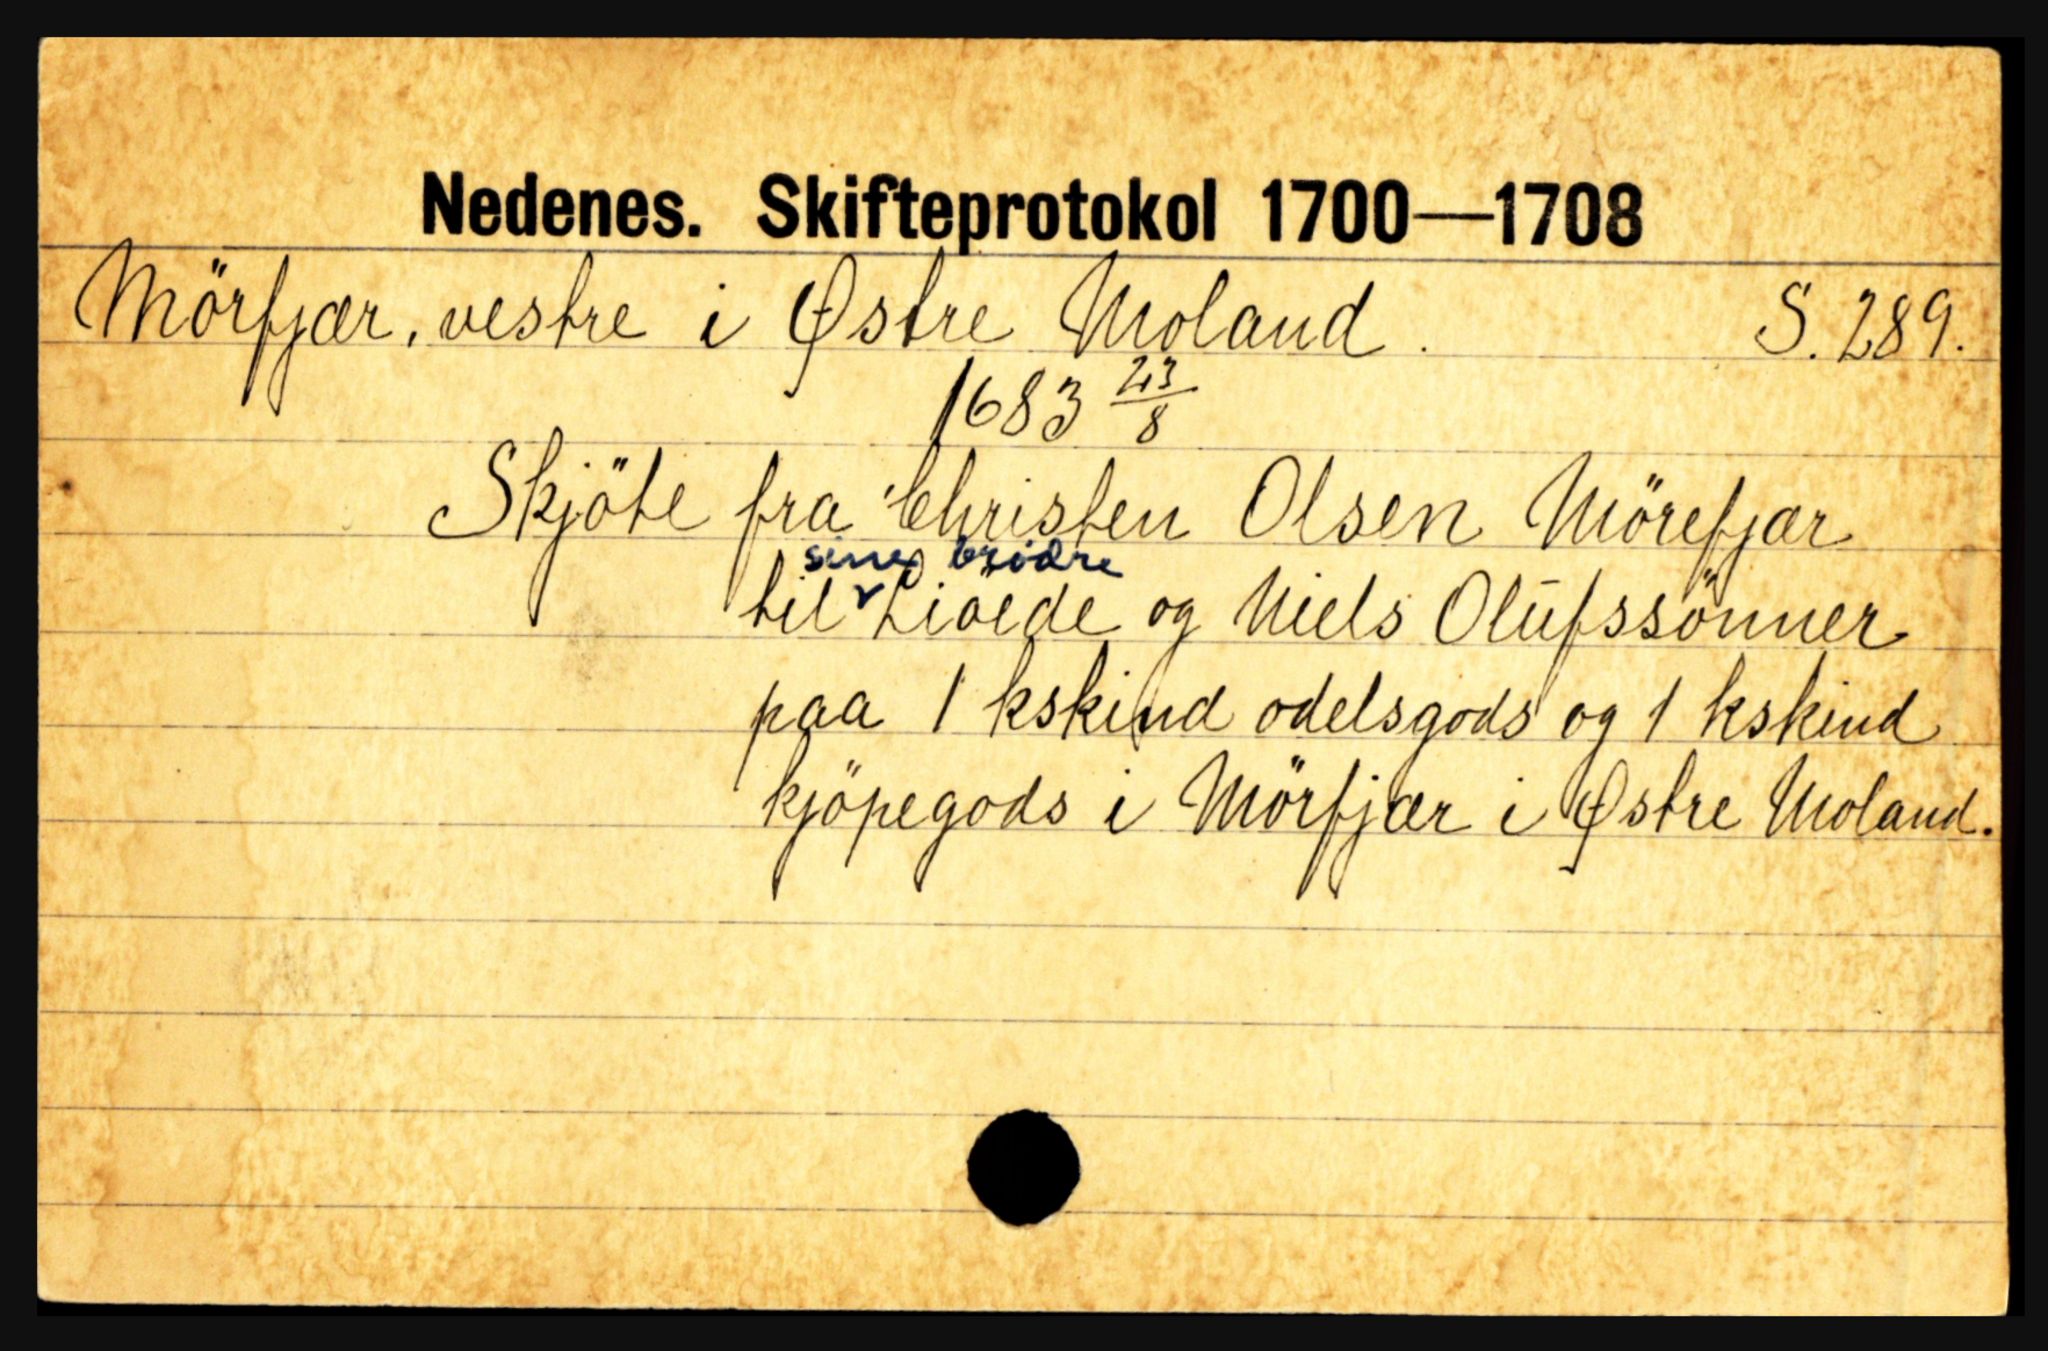 Nedenes. Skifteprotokol 1700—1708
Mörfjær, vestre i Østre Moland. S. 289.
1683 23/8
Skjöte fra Christen Olsen Mörefjær
sine brödre
til Livede og Niels Olŭfssönner
paa 1 kskind odelsgods og 1 kskind
kjöpegods i Mörfjær i Østre Moland.